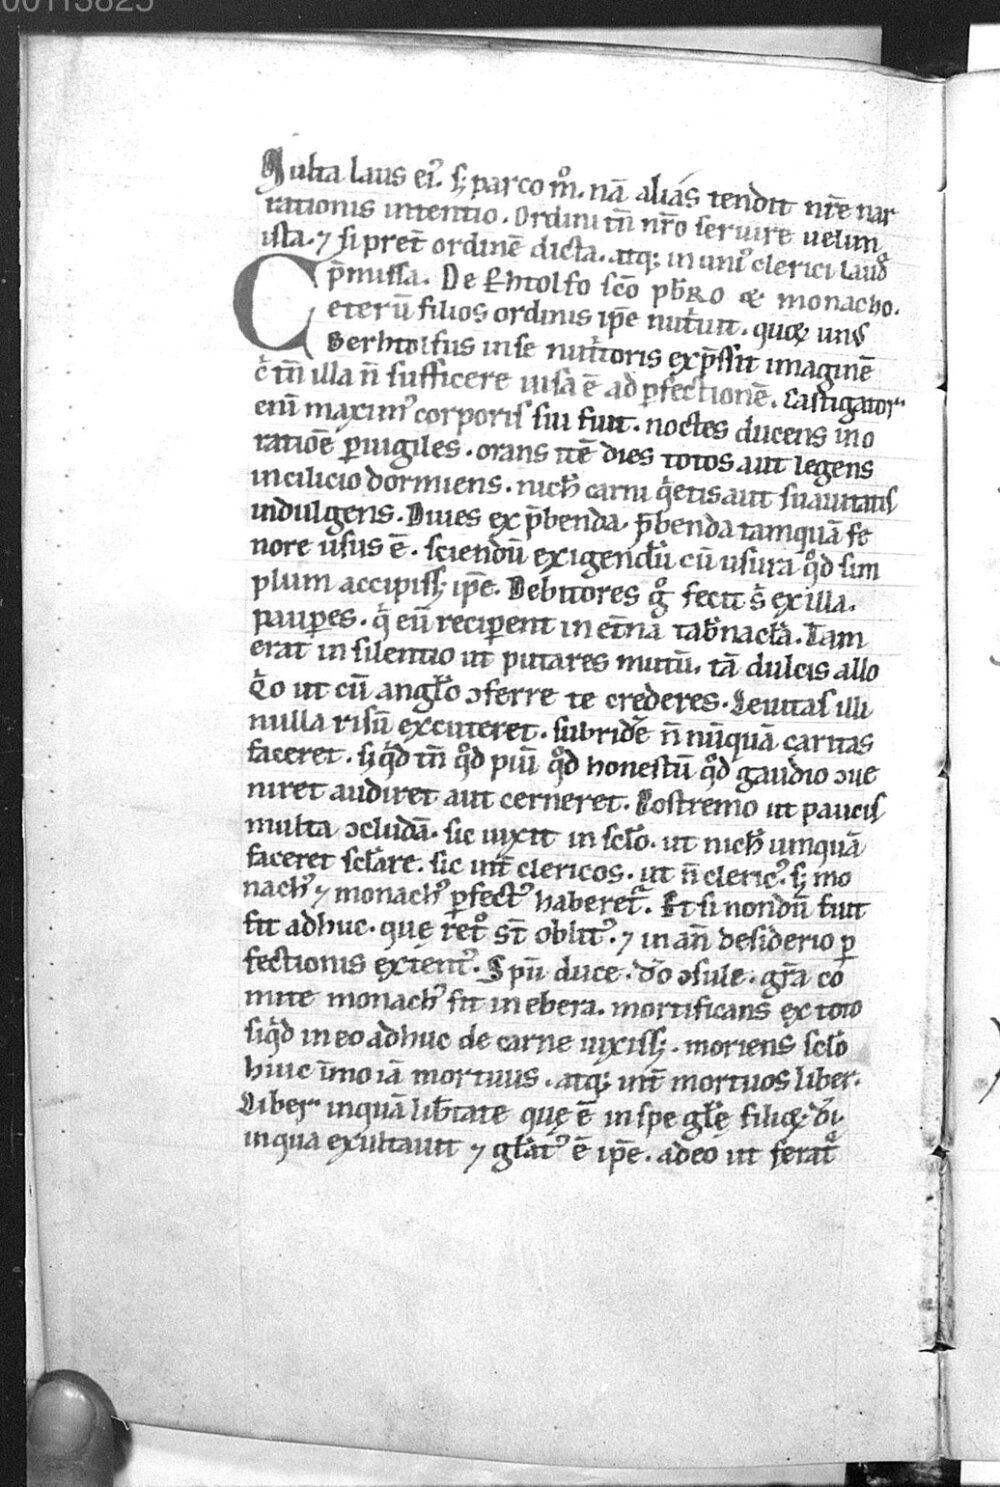 00113825
Multa laus eiꝰ. sꝫ parco m̊. nā alias tendit nr̄e nar
rationis intentio. Ordini tn̄ nr̄o seruire uelim
ista. ⁊ si pret̄ ordinē dicta. atqꝫ in uniꝰ clerici laud̄
p̄missa. De Ehtolfo sc̄o pb̄ro & monacho.
Ceterū filios ordinis ip̄e nutͥuit. quoꝝ unꝰ
Berhtolfus in se nutͥitoris exp̄ssit imaginē
tn̄ illa n̄ sufficere uisa ē ad ꝑfectionē. Castigator
eni maximꝰ corporis sui fuit. noctes ducens in o
ratiōe ꝑuigiles. orans itē dies totos aut legens
in cilicio dormiens. nich̄ carni qͥetis aut suauitatis
indulgens. Diues ex p̄benda. p̄benda tamquā fe
nore usus ē. sciendū exigendū cū usura qͦd sim
plum accipissꝫ ip̄e. Debitores gͦ fecit sͥ ex illa.
pauꝑes. qͥ eū reciperent in et̄na tab̄nacl̄a. Tam
erat in silentio ut putares mutū. tā dulcis allo
qͥo ut cū angl̄o ↄferre te crederes. Leuitas illi
nulla risū excuteret. subridē n̄ nūquā caritas
faceret. sꝫ qͥd tn̄ qͦd piū qͦd honestū qͦd gaudio ↄue
niret audiret aut cerneret. Postremo ut paucis
multa ↄcludā. sic uixit in scl̄o. ut nich̄ umquā
faceret scl̄are. sic int̄ clericos. ut n̄ clericꝰ. sꝫ mo
nachꝰ ⁊ monachꝰ ꝑfectꝰ haberet᷑. Et si nondū fuit
fit adhuc. que ret̊ st̄ oblitꝰ. ⁊ in an̄ desiderio ꝑ
fectionis extentꝰ. Spū duce. dō ↄsule. gr̄a co
mite monachꝰ fit in ebera. mortificans ex toto
siqͥd in eo adhuc de carne uixissꝫ. moriens scl̄o
huic īmo iā mortuus. atqꝫ int̄ mortuos liber.
Liber inquā lib̄tate que ē in spe gl̄e filioꝝ dī
in qua exultauit ⁊ gl̄atꝰ ē ip̄e. adeo ut ferat᷑